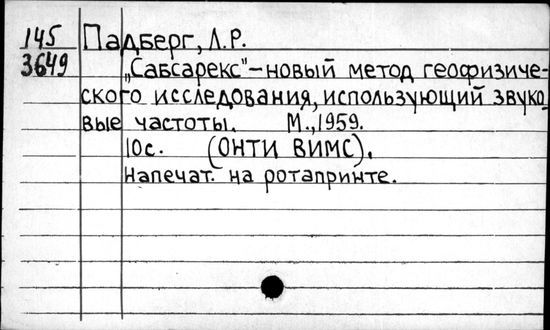 145 Падберг, Л.Р.
3649 „Сабсарекс"-новый метод геофизиче-
ского исследования, использующий звуко-
вые частоты. М.,1959.
10с. (ОНТИ ВИМС).
Напечат. на ротапринте.